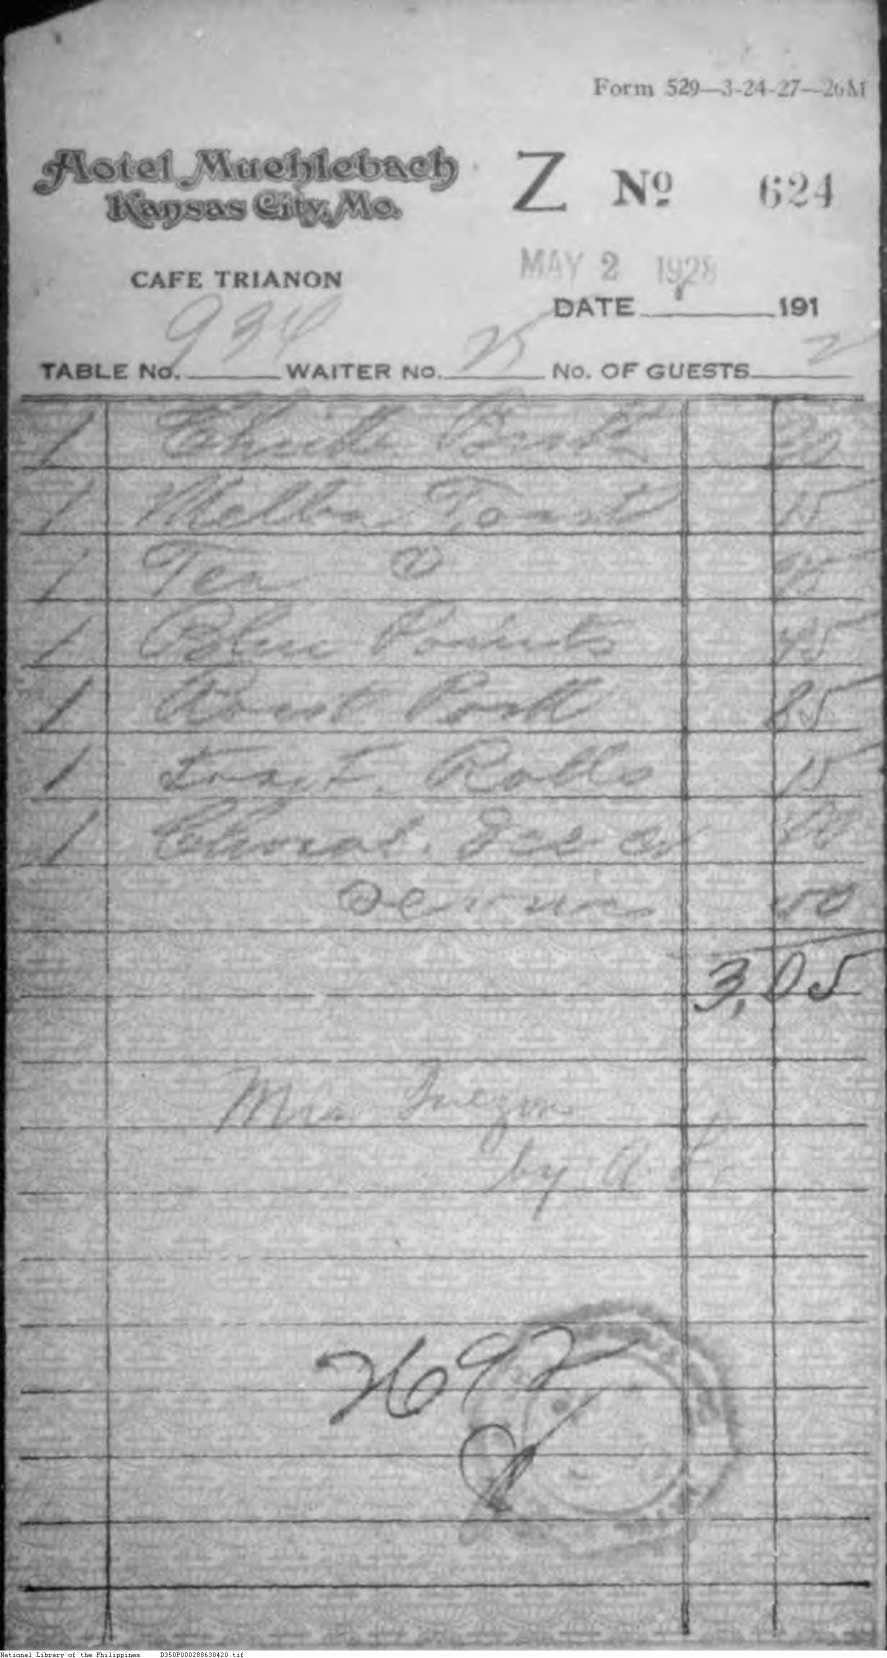 Form 529—3-24-27—26M
Hotel Muehlebach
Kansas City, Mo.
Z No 624
CAFE TRIANON
MAY 2 1928
DATE 191
934 25 2
TABLE No. WAITER No. No. OF GUESTS
1 Broth
1 Melba Toast 15
1 Tea
1 Blue Points 45
1 Roast Pork 85
1 Rolls 15
1 Chocol. Ice Cr
Service
3,05
Mrs Quezon
by A. L.
2692
National Library of the Philippines D350P000288630420.tif